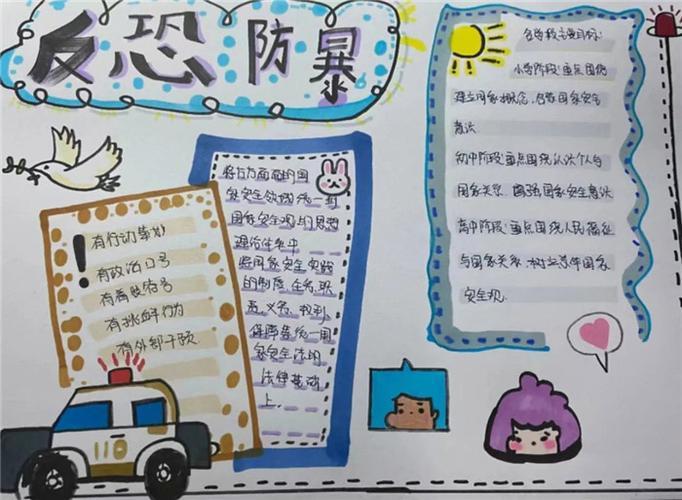 反恐防暴
各学段主要目标:
小学阶段:重点围绕
建立国家概念,启蒙国家安全
意识
初中阶段:重点围绕认识个人与
国家关系,增强国家安全意识
高中阶段:重点围绕人民福祉
与国家关系,树立总体国家
安全观.
将各方面面的国
家安全领域统一到
国家安全观与思想
通俗体系中
将国家安全实践
的制度、任务、职
责、义务、权利、
保障等统一用
家安全法的
法律基础
上.
!
有行动策划
有政治口号
有着装符号
有挑衅行为
有外部干预
110